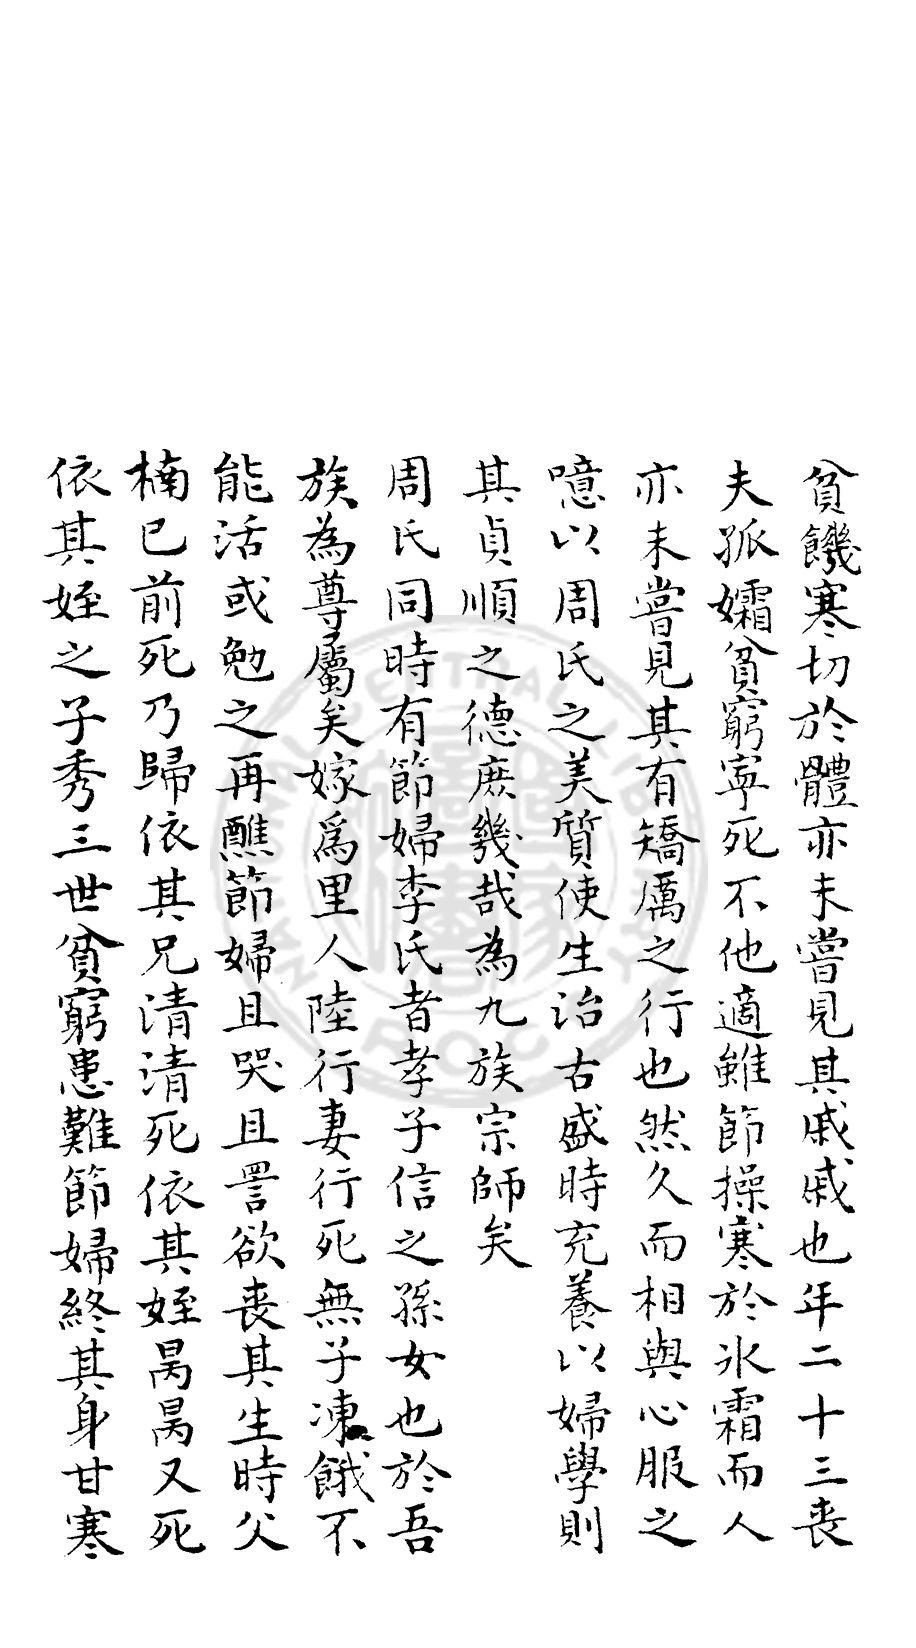 貧饑寒切於體亦未嘗見其戚戚也年二十三喪
夫孤孀貧窮寧死不他適雖節操寒於氷霜而人
亦未嘗見其有矯厲之行也然久而相與心服之
噫以周氏之美質使生治古盛時充養以婦學則
其貞順之德庶幾哉為九族宗師矣
周氏同時有節婦李氏者孝子信之孫女也於吾
族為尊屬矣嫁爲里人陸行妻行死無子凍餓不
能活或勉之再醮節婦且哭且詈欲喪其生時父
楠已前死乃歸依其兄清清死依其姪昺昺又死
依其姪之子秀三世貧窮患難節婦終其身甘寒